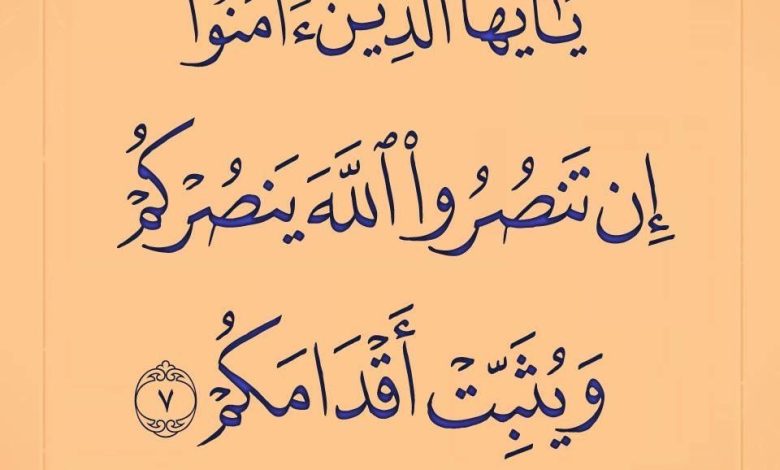 يَٰٓأَيُّهَا ٱلَّذِينَ ءَامَنُوٓا۟
إِن تَنصُرُوا۟ ٱللَّهَ يَنصُرْكُمْ
وَيُثَبِّتْ أَقْدَامَكُمْ ٧